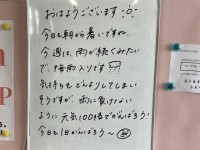 おはようございます
今日も朝から暑いですね。
今週は、雨が続くみたい
で、梅雨入りです
気持ちもどんよりしてしまい
そうですが、雨に負けない
ように元気100倍でがんばろう!
今日も1日がんばろう〜